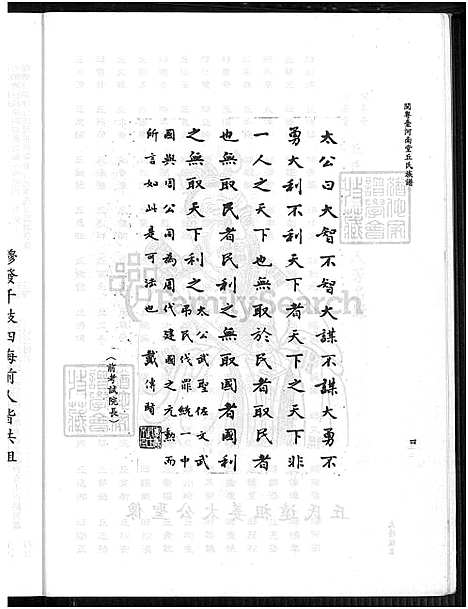 閩粵臺河南堂丘氏族譜
四
太公曰大智不智大謀不謀大勇不
勇大利不利天下者天下之天下非
一人之天下也無取於民者取民者
也無取民者民利之無取國者國利
之無取天下者天下利之
太公武聖佐文武
弔民代罪統一中
國與周公同為周代建國之元勳而
所言如此是可法也 戴傳賢
（前考試院長）
丘氏遠祖姜太公聖像
發千枝四海前人皆共祖
FamilySearch